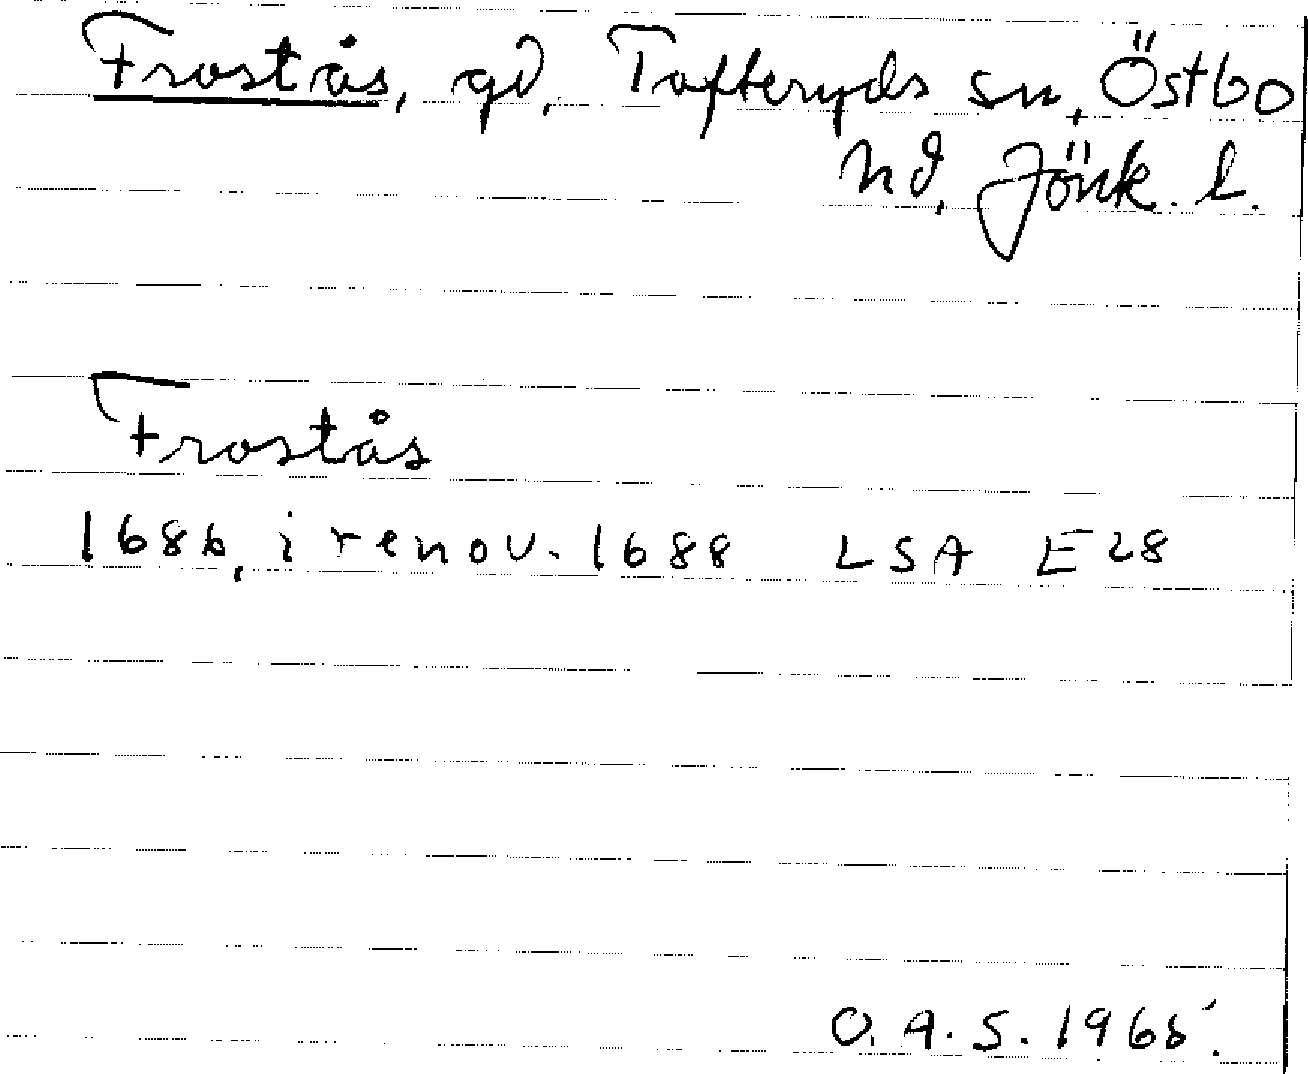 Frostås, gd, Tofteryds sn, Östbo
hd, Jönk. l.
Frostås
1686, i renov. 1688 LSA E28
O.A.S. 1965.